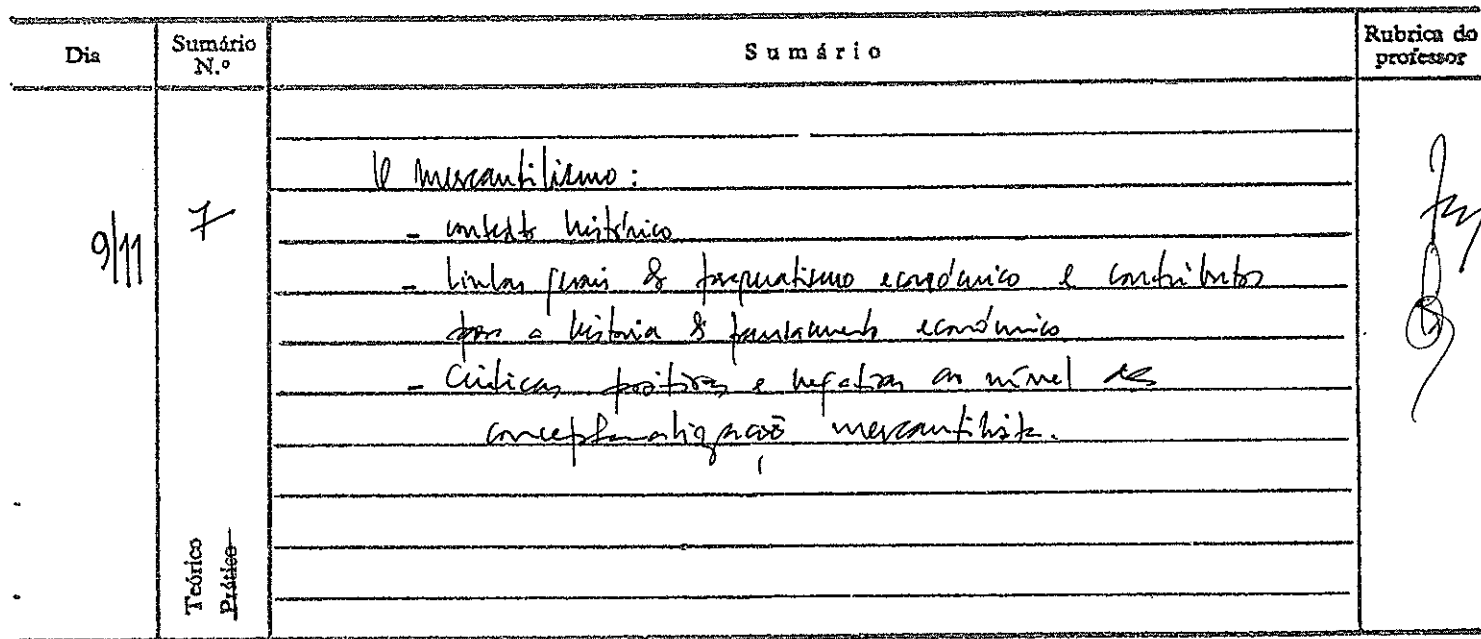 Dia
Sumário N.º
Sumário
Rubrica do professor
9/11
7
O mercantilismo:
- contexto histórico
- linhas gerais do pragmatismo económico e contributos
para a história do pensamento económico
- Críticas positivas e negativas ao nível da
conceptualização mercantilista.
Teórico
Prático